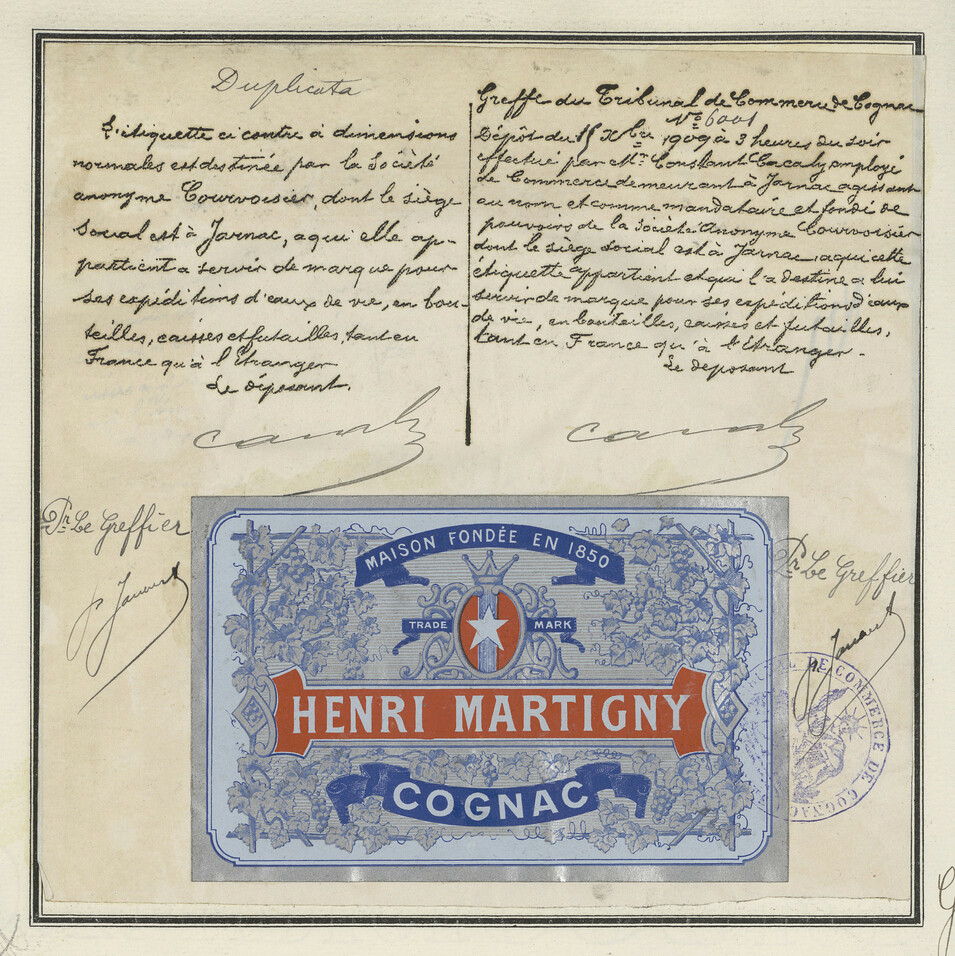 Duplicata
L'étiquette ci contre à dimensions
normales est destinée par la Société
anonyme Courvoisier, dont le siège
social est à Jarnac, a qui elle ap-
partient a servir de marque pour
ses expéditions d'eaux de vie, en bou-
teilles, caisses et futailles, tant en
France qu'à l'Etranger
Le déposant.
Greffe du Tribunal de Commerce de Cognac
No 6001
Dépôt du 15 Xbre 1909 à 3 heures du soir
effectué par Mr. Constant Cacaly employé
de Commerce demeurant à Jarnac agissant
au nom et comme mandataire et fondé de
pouvoirs de la Société Anonyme Courvoisier
dont le siège social est à Jarnac, a qui cette
étiquette appartient et qui l'a destine a lui
servir de marque pour ses expéditions d'eaux
de vie, en bouteilles, caisses et futailles,
tant en France qu'à l'Etranger.
Le deposant
Pr. Le Greffier
Pr. Le Greffier
MAISON FONDÉE EN 1850
TRADE MARK
HENRI MARTIGNY
COGNAC
DE COMMERCE DE COGNAC